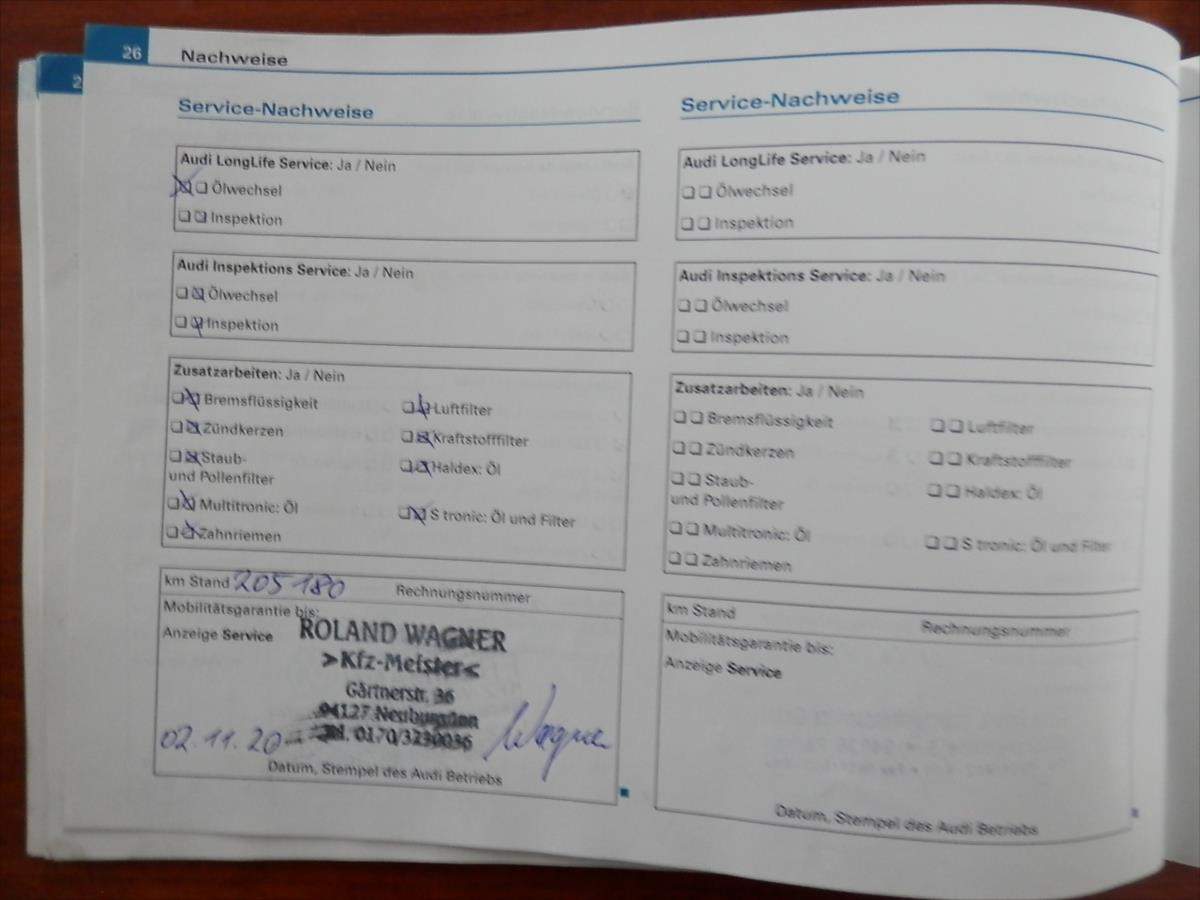 26 Nachweise
Service-Nachweise
Audi LongLife Service: Ja / Nein
Ölwechsel
Inspektion
Audi Inspektions Service: Ja / Nein
Ölwechsel
Inspektion
Zusatzarbeiten: Ja / Nein
Bremsflüssigkeit
Luftfilter
Zündkerzen
Kraftstofffilter
Staub-
und Pollenfilter
Haldex: Öl
Multitronic: Öl
S tronic: Öl und Filter
Zahnriemen
km Stand 205180 Rechnungsnummer
Mobilitätsgarantie bis:
Anzeige Service
ROLAND WAGNER
>Kfz-Meister<
Gärtnerstr. 36
94127 Neuburg/Inn
Tel. 0170/3230036
02.11.20
Wagner
Datum, Stempel des Audi Betriebs
Service-Nachweise
Audi LongLife Service: Ja / Nein
Ölwechsel
Inspektion
Audi Inspektions Service: Ja / Nein
Ölwechsel
Inspektion
Zusatzarbeiten: Ja / Nein
Bremsflüssigkeit
Luftfilter
Zündkerzen
Kraftstofffilter
Staub-
und Pollenfilter
Haldex: Öl
Multitronic: Öl
S tronic: Öl und Filter
Zahnriemen
km Stand
Rechnungsnummer
Mobilitätsgarantie bis:
Anzeige Service
Datum, Stempel des Audi Betriebs